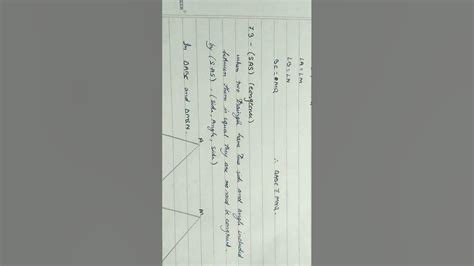 ∠A = ∠M
∠B = ∠N
BC = MQ ∴ ΔABC ≅ MNQ.
7.3 - (SAS) (congruent)
when two have two side and angle included
between there is equal they are said to congruent.
by (SAS) - (Side, Angle, Side)
In ΔABC and ΔMBN.
A M